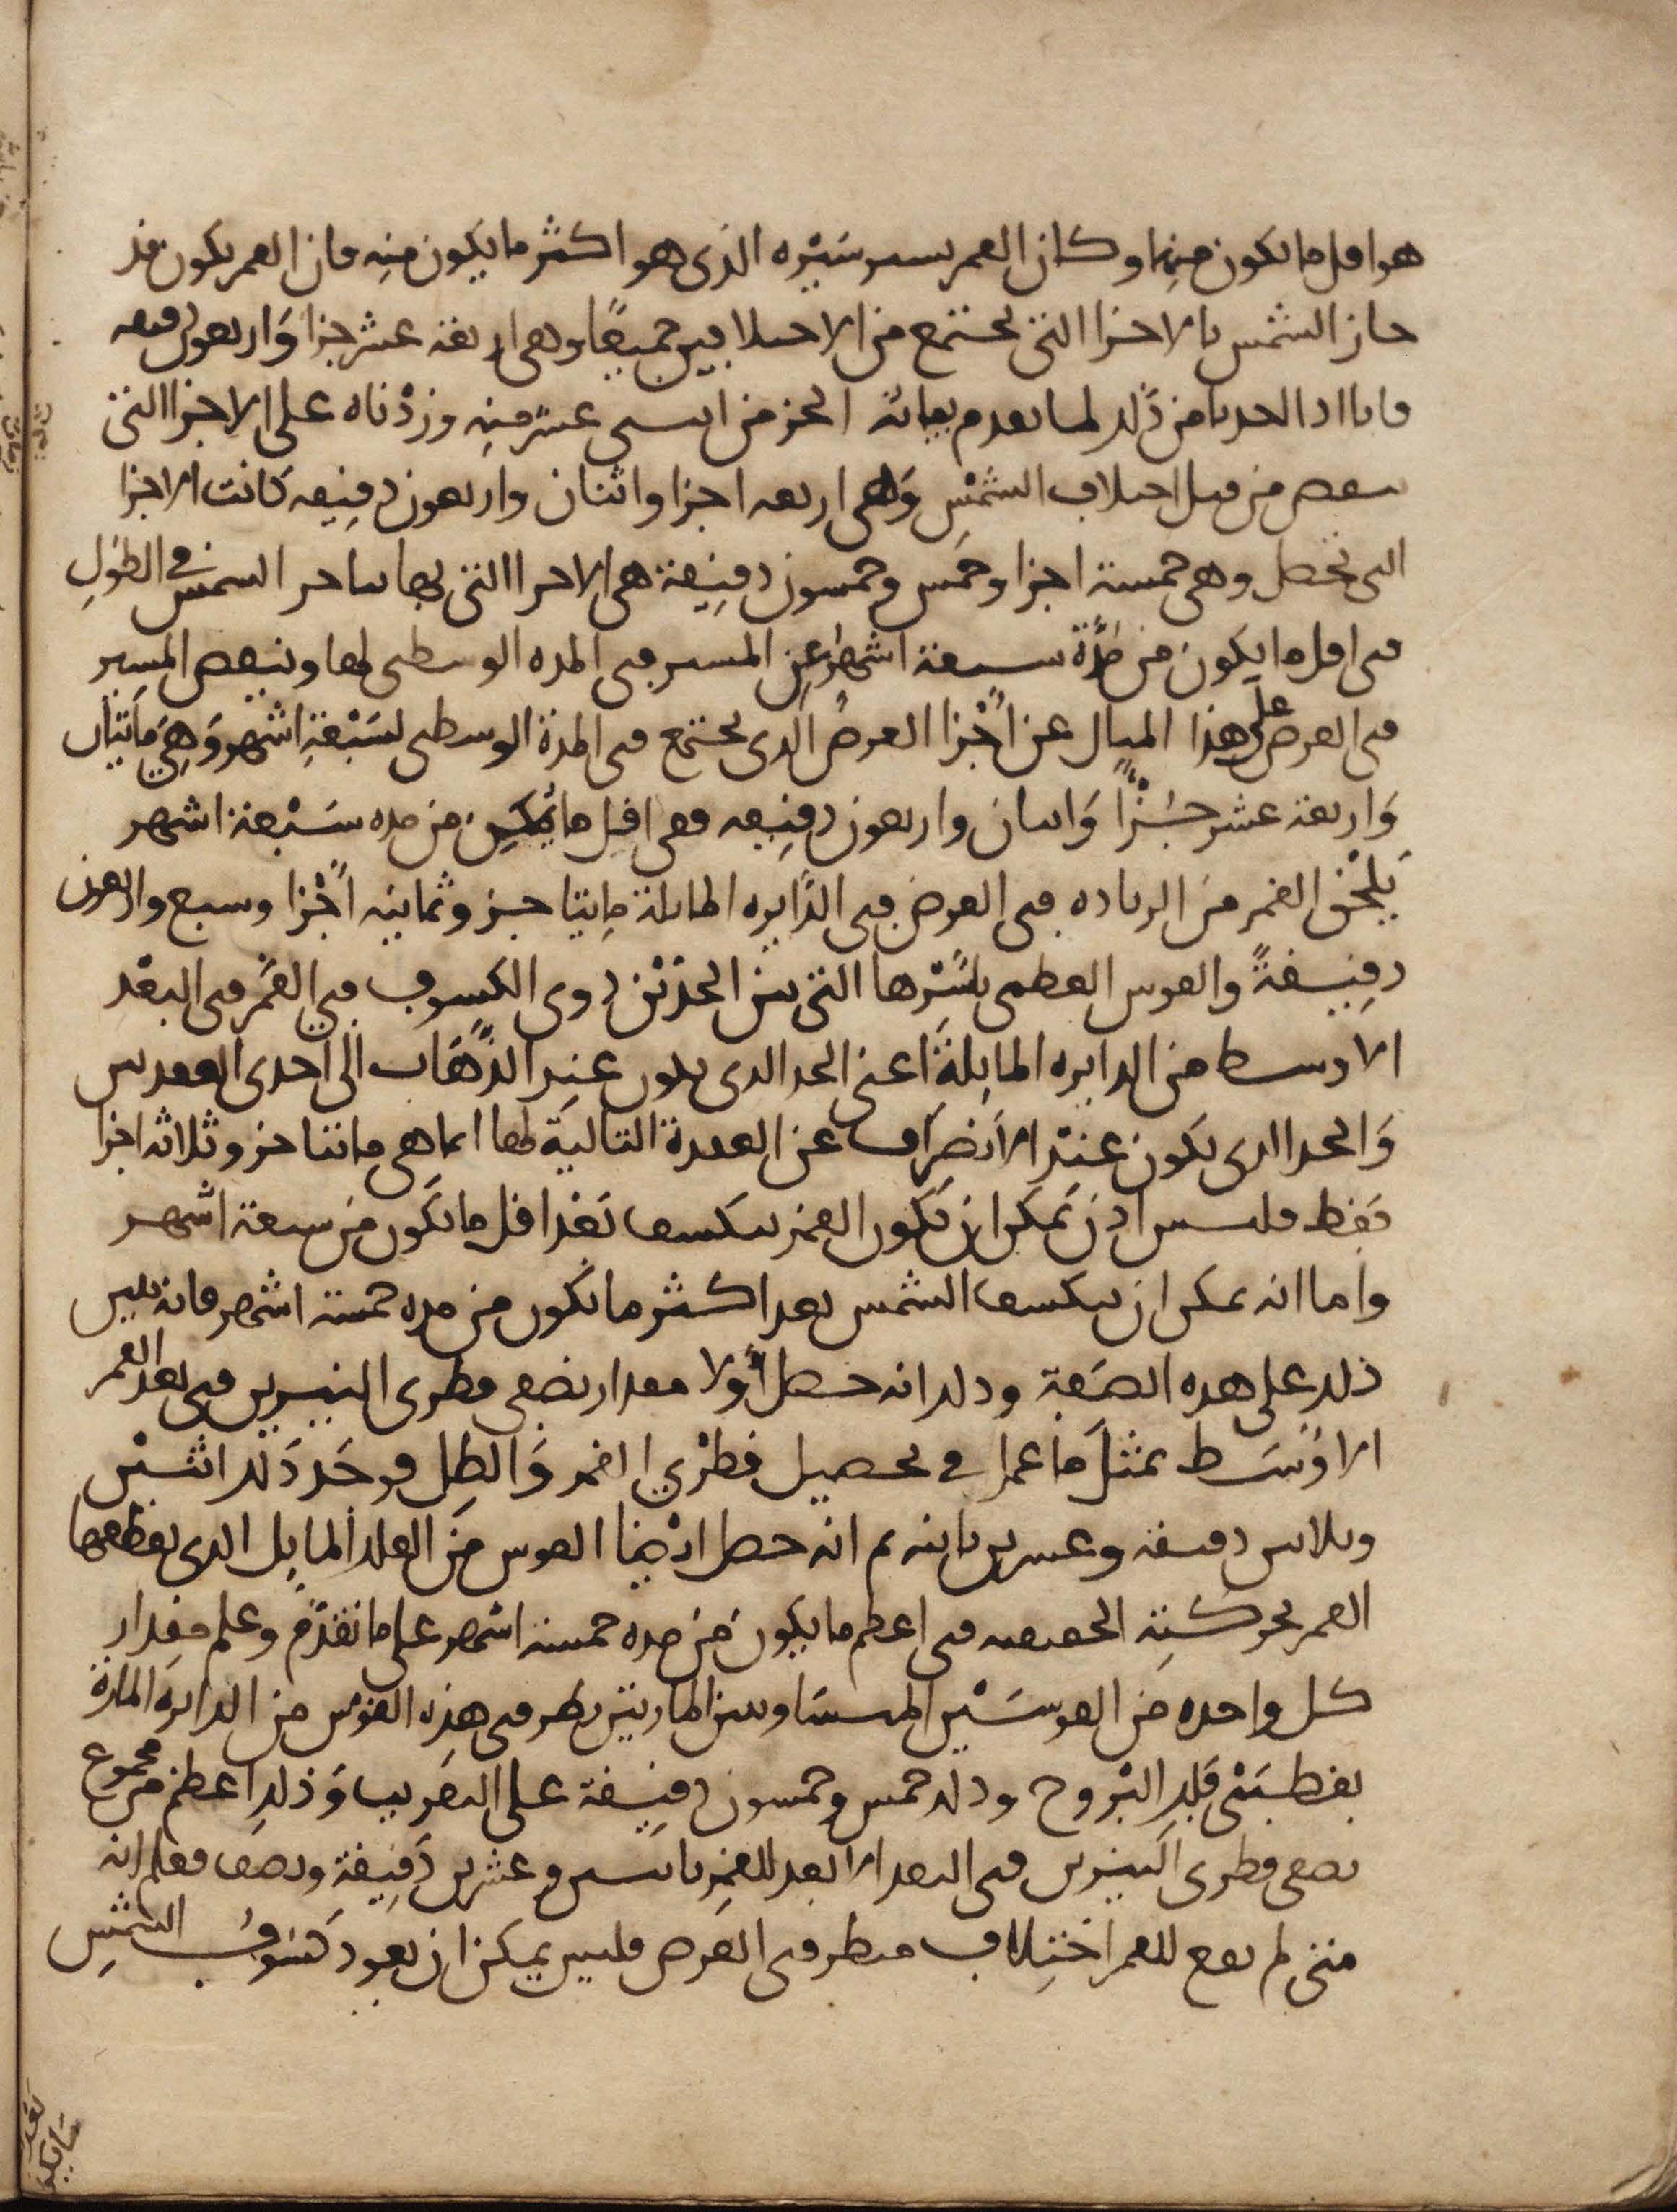 هو اقل ما يكون منها وكان القمر يسير سَيْره الذى هو اكثر ما يكون منه فان القمر يكون قد
جاز الشمس بالاجزا التى تجتمع من الاختلافين جميعًا وهى اربعة عشر جزا وَاربعون دقيقه
فاذا اخذنا من ذَلك لما تقدم بيانه الجز من اثنى عشر منه وزدْناه على الاجزا التى
تنقص من قبل اختلاف الشمْسِ وَهى اربعه اجزا واثنان واربعون دقيقه كانت الاجزا
التى تحصل وهى خمسة اجزا وخمَس وخمسون دقيقة هى الاجزا التى بها تتاخر الشمس في الطول
فى اقل ما يكون من مدَّة سبعة اشهر عن المسير فى المده الوسطى لها وتنقص المسير
فى العرض على هذا المثال عن اجْزا العرض الذى يجتمع فى المدة الوسطى لسَبْعةِ اشهر وَهى مَائتان
وَاربعة عشر جُزْاً وَاثنان واربعون دقيقه ففى اقل ما يُمكن من مده سَبْعة اشهر
يَلحْق القمر من الزياده فى العرض فى الدَّايره المائلة مايتا جز وثمانيه اجْزا وسبع واربعون
دقيقةً والقوس العظمى باسْرْها التى بين الحدّيْن ذوى الكسوف فى القمَر فى البعْد
الاوسط من الدايره المايلة اَعنى الحد الذى يكون عند الذَّهَاب الى احدى العقدتين
وَالحد الذى يكون عنْد الانصِرَاف عن العقدة التاليَة لها انما هى مائتا جز وثلاثه اجزا
فقط فليس اذن يَمكن ان يَكون القمر ينكسف بَعْد اقل ما يَكون من سبعة اشهر
واما انه يمكن ان ينكسف الشمس بعد اكثر ما يكون من مده خمسة اشهر فانه يبين
ذلك على هذه الصفَة وذلك انه حصل أولا مقدار نصفى قطرى النيرين فى بعد القمر
الاوْسَط بمثل ما عمل في تحصيل قطرْي القمر وَالظل فوجَد ذَلك اثنتين
وثلاثين دقيقة وعشرين ثانيه ثم انه حصل ايْضا القوس منَ الفلك المايل الذى يقطعها
القمر بحركته الحقيقيه فى اعظم ما يكون من مده خمسة اشهر على ما تقدّم وعلم مقدار
كل واحده من القوسَيْن المتسَاويتين المارتين بطرفى هذه القوس من الدايرة المارة
بقطبَىْ فلك البْروج وذلك خمس وخمسون دقيقة على التقريب وَذلك اعظم من مجموع
نصفى قطرى النيرين فى البعد الابعد للقمر باثنين وعشرين دقيقة ونصف فعلم انه
متى لم يقع للقمر اختلاف منظر فى العرض فليس يمكن ان يعود كسُوف الشمس